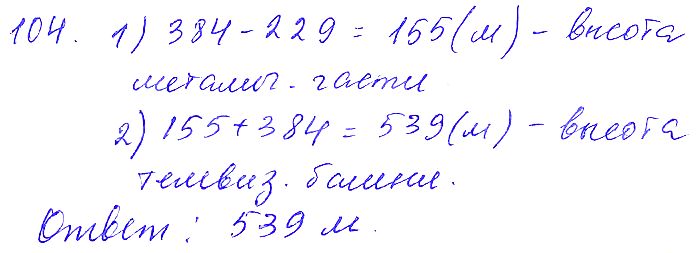 104. 1) 384 - 229 = 155 (м) - высота
металл. части
2) 155 + 384 = 539 (м) - высота
телевиз. башни.
Ответ: 539 м.